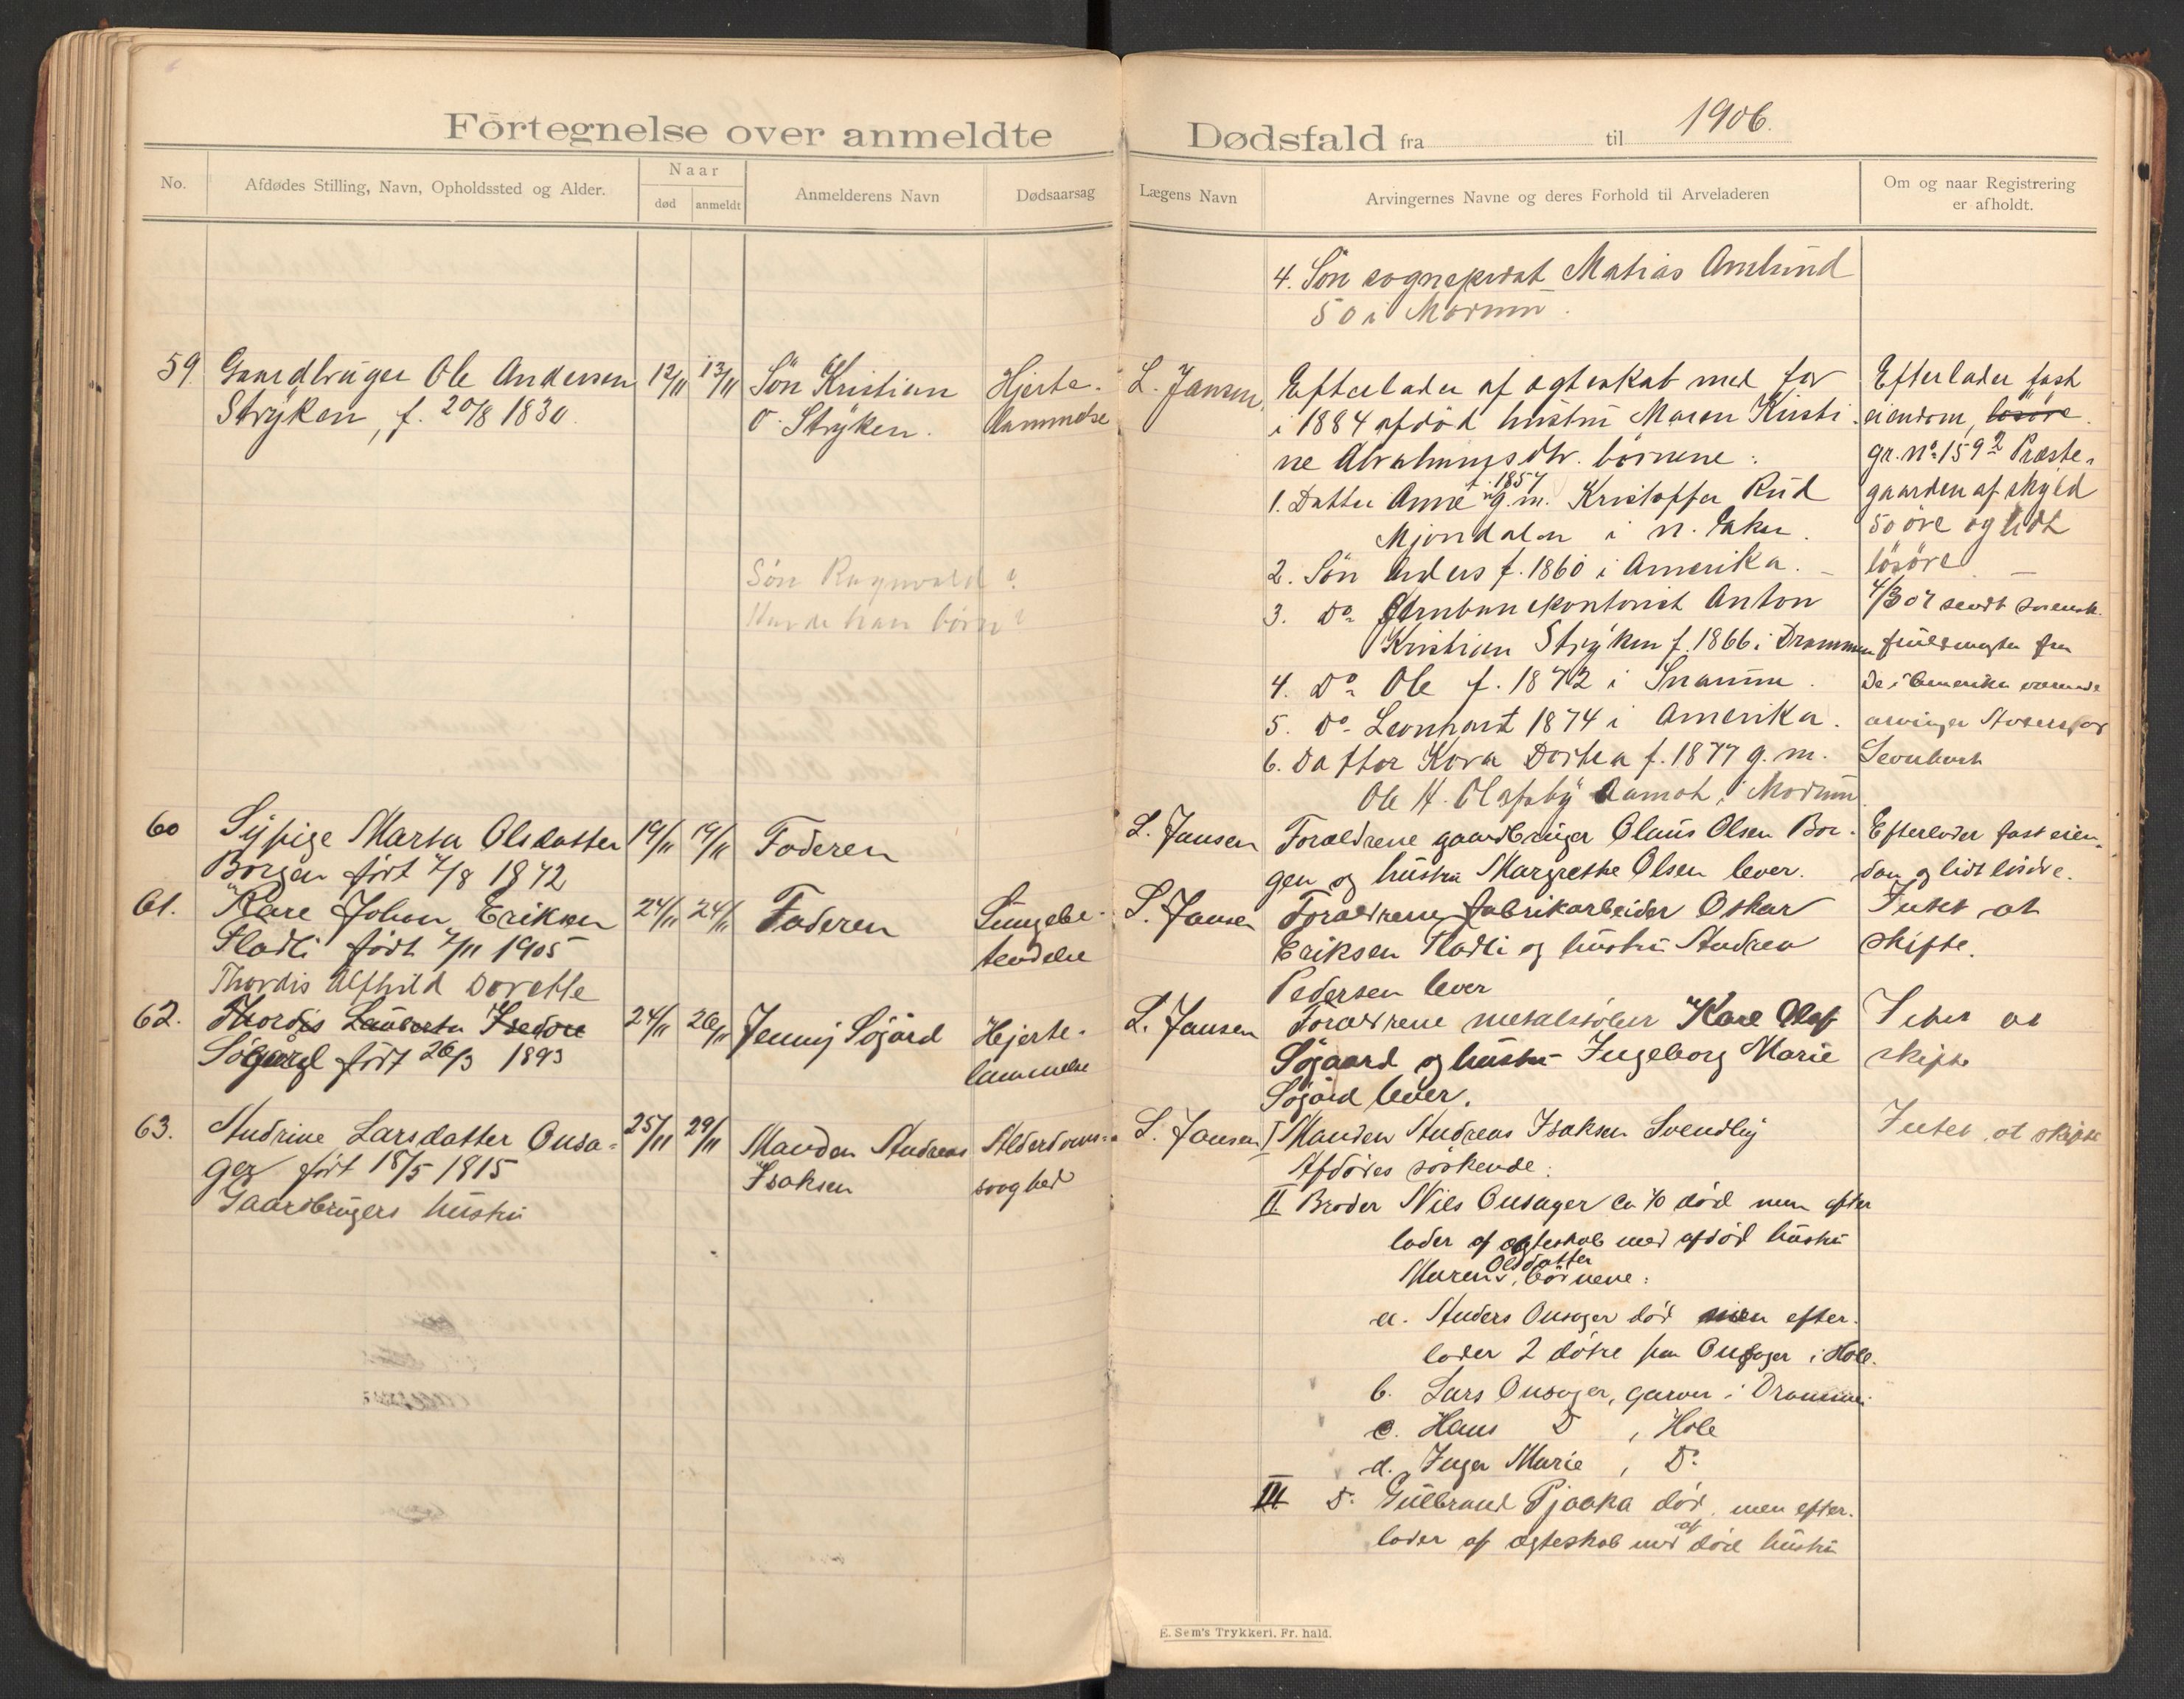 Førtegnelse over anmeldte
Dødsfald fra til 1906.
No.
Afdødes Stilling, Navn, Opholdssted og Alder.
Naar
død
anmeldt
Anmelderens Navn
Dødsaarsag
Lægens Navn
Arvingernes Navne og deres Forhold til Arveladeren
Om og naar Registrering
er afholdt.
4. Søn Matias Amlund
50 i Modum.
59. Gaardbruger Ole Andersen
Stryken, f. 20/8 1830.
12/11
13/11
Søn Kristian
O. Stryken.
Hjerte-
lammelse
L. Jansen.
Efterlader af ægteskab med før
i 1884 afdød hustru Maren Kristi-
ne Abrahamsdtr. børnene:
1. Datter Anne f. 1857 g. m. Kristoffer Rud
Mjøndalen i N. Eker.
2. Søn Anders f. 1860 i Amerika.
3. Do Jernbanekontorist Anton
Kristian Stryken f. 1866 i Drammen
4. Do Ole f. 1872 i Snarum.
5. Do Leonhart 1874 i Amerika.
6. Datter Kora Dortea f. 1877 g. m.
Ole H. Olafsby Aamot, i Modum.
Efterlader fast
eiendom, løsøre.
gr. no 159 2 Præste-
gaarden af skyld
50 øre og lidt
løsøre
4/3 07 sendt
fuldmagter fra
de i Amerika værende
arvinger Anders og
Leonhart
Søn Ragnvald?
Havde han børn?
60 Sypige Marta Olsdatter
Borgen født 4/8 1872
19/11
19/11
Faderen
L. Jansen
Forældrene gaardbruger Olaus Olsen Bor-
gen og hustru Margrethe Olsen lever.
Efterlader fast eien-
dom og lidt løsøre.
61. Kåre Johan Eriksen
Fladli født 4/11 1905
24/11
24/11
Faderen
Lungebe-
tendelse
L. Jansen
Forældrene fabrikarbeider Oskar
Eriksen Fladli og hustru Andrea
Pedersen lever
Intet at
skifte.
Thordis Alfhild Dorette
62. Thordis Lauberta Isedore
Søgård født 26/3 1893
24/11
26/11
Jenny Søgård
Hjerte-
lammelse
L. Jansen
Forældrene Kare Olaf
Søgaard og hustru Ingeborg Marie
Søgård lever.
Intet at
skifte
63. Andrine Larsdatter Onsa-
ger født 18/5 1815
Gaardbrugers hustru
25/11
29/11
Manden Andreas
Isaksen
Alderdoms-
svaghed
L. Jansen
I Manden Andreas Isaksen Svendby
Afdødes søskende:
II. Broder Nils Onsager ca 70 død men efter
lader af ægteskab med afdød hustru
Maren Olsdatter, børnene:
a. Anders Onsager død men efter-
lader 2 døtre paa Onsager i Hole.
b. Lars Onsager, garver i Drammen
c. Hans Do, Hole
d. Inger Marie, Do
III Do Gulbrand Pjaaka død, men efter-
lader af ægteskab med afdød hustru
Intet at skifte
E. Sem's Trykkeri, Fr. hald.